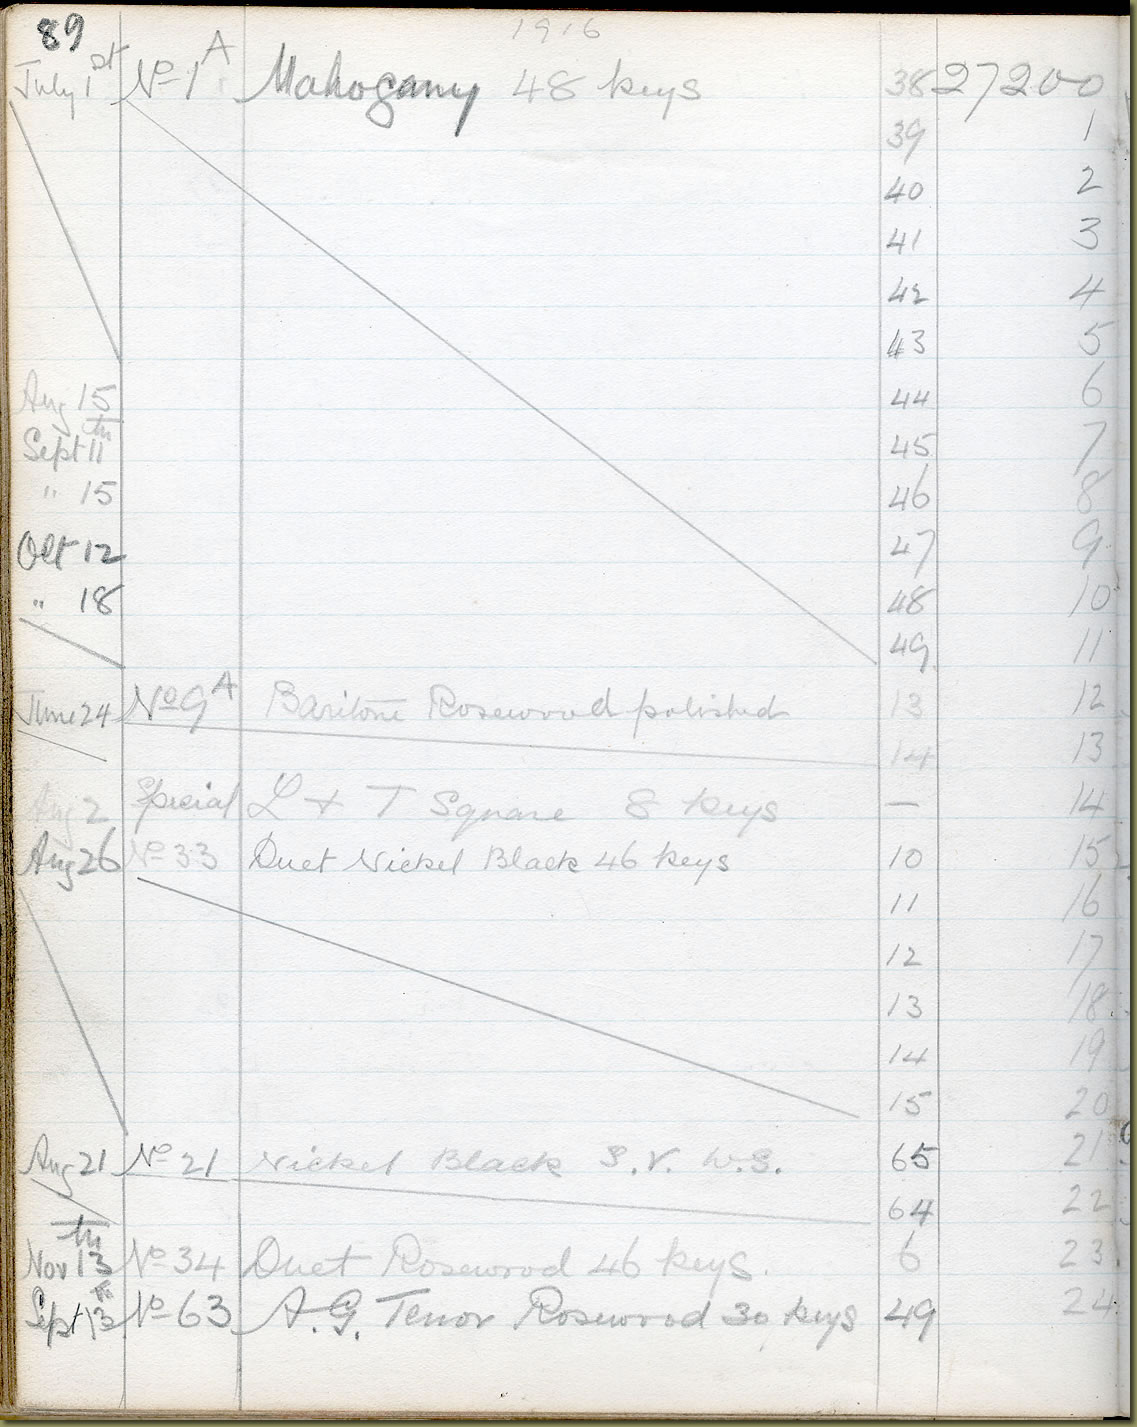 89 1916
July 1st No 1A Mahogany 48 keys 38 27200
39 1
40 2
41 3
42 4
43 5
Aug 15 44 6
Sept 11th 45 7
" 15 46 8
Oct 12 47 9
" 18 48 10
49 11
June 24 No 9A Baritone Rosewood polished 13 12
14 13
Aug 2 Special L & T Square 8 keys — 14
Aug 26 No 33 Duet Nickel Black 46 keys 10 15
11 16
12 17
13 18
14 19
15 20
Aug 21 No 21 Nickel Black S.V. W.S. 65 21
64 22
Nov 13th No 34 Duet Rosewood 46 keys. 6 23
Sept 13th No 63 A.G. Tenor Rosewood 30 keys 49 24